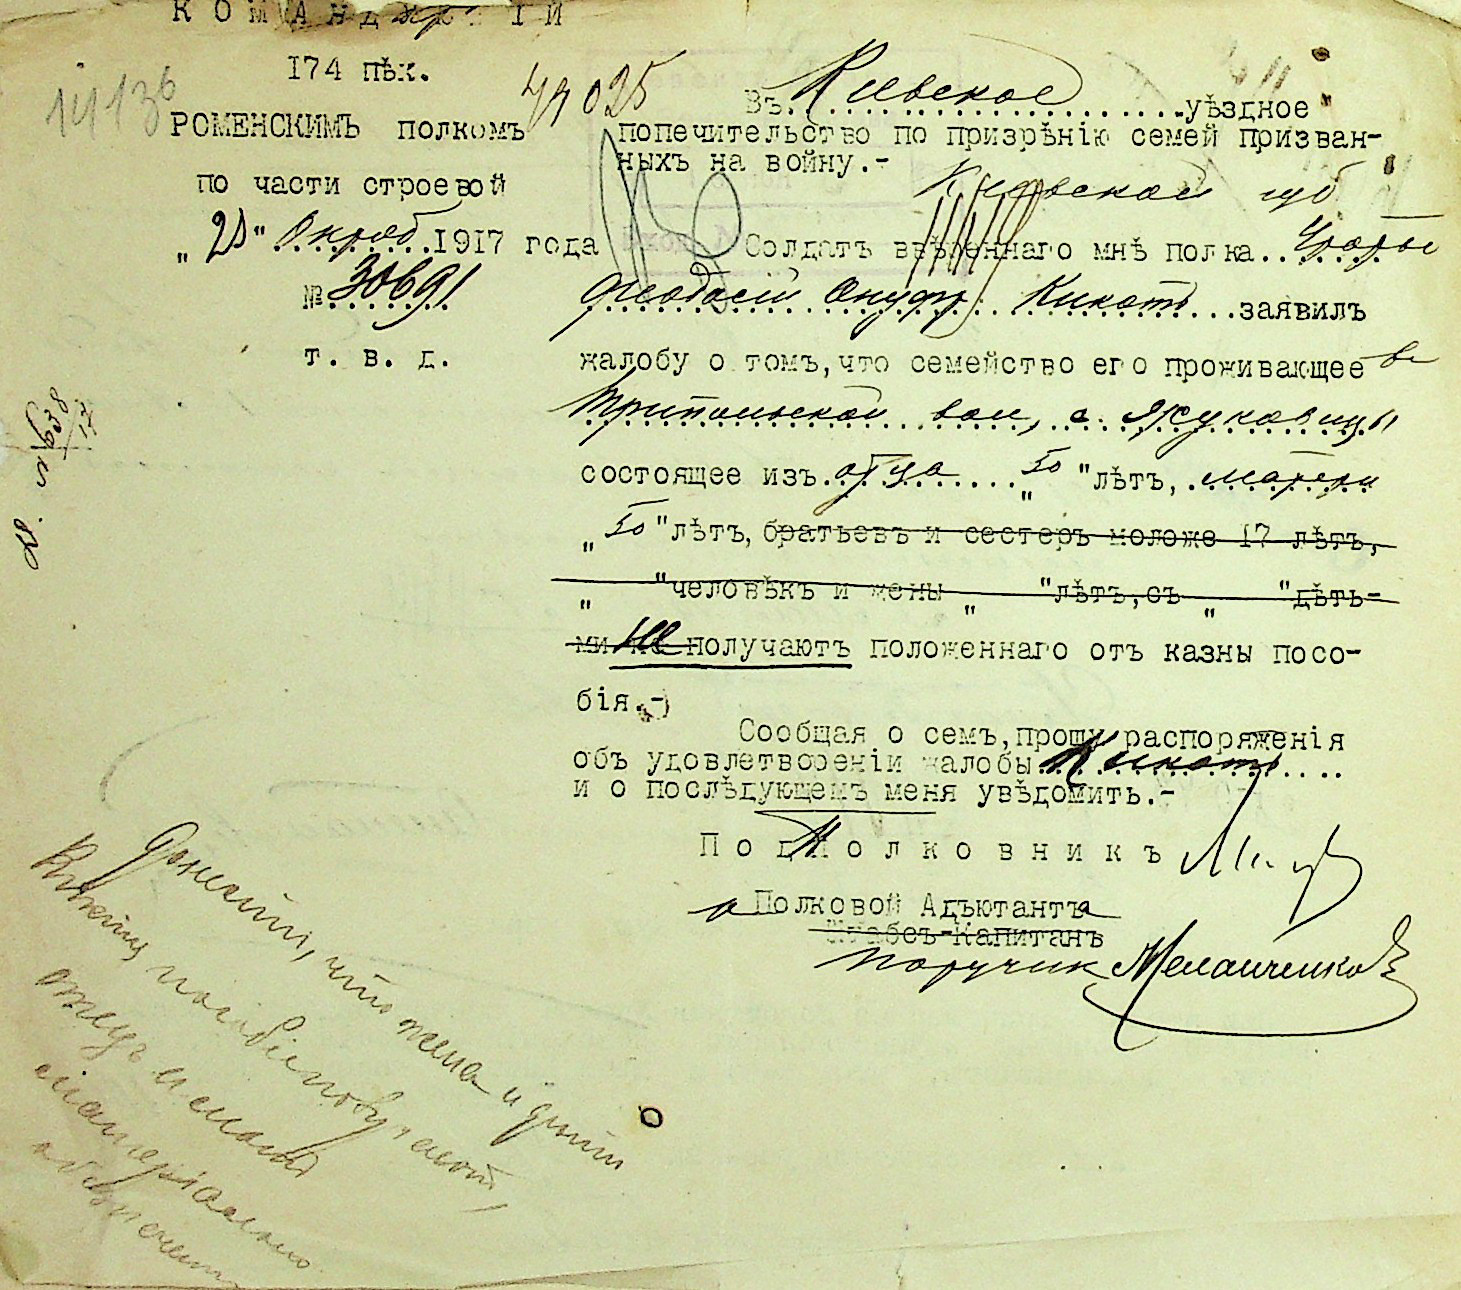 КОМАНДУЮЩІЙ
174 пѣх.
РОМЕНСКИМЪ полкомъ
по части строевой
"21" Октяб. 1917 года
№ 30691
т. в. д.
14136
49025
Въ Кіевское уѣздное
попечительство по призрѣнію семей призван-
ныхъ на войну.-
Кіевской губ
Солдатъ ввѣреннаго мнѣ полка..
Феодосій Онуфр. Кикоть...заявилъ
жалобу о томъ,что семейство его проживающее въ
Трипольской вол, с. Жуковцы
состоящее изъ отца "50"лѣтъ, матери
"50"лѣтъ, братьевъ и сестеръ моложе 17 лѣтъ,
" "человѣкъ и жены " "лѣтъ,съ " "дѣть-
ми не получаютъ положеннаго отъ казны посо-
бія.-
Сообщая о семъ,прошу распоряженія
объ удовлетвореніи жалобы Кикоть
и о послѣдующемъ меня увѣдомить.-
Подполковникъ
Полковой Адъютантъ
Штабсъ-Капитанъ
поручик
что жена и дѣти
Кикотя пособіе получают,
отецъ и мать
матеріально
обезпечены